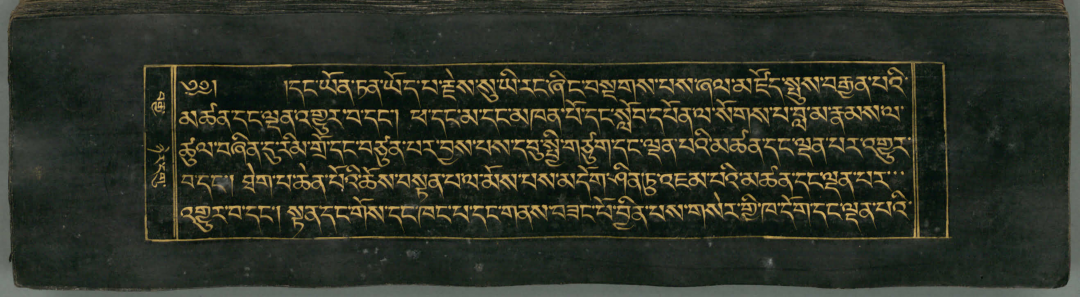 ༄༅། །དང་ཡོན་ཏན་ཡོད་པ་རྗེས་སུ་ཡི་རང་ཞིང་བསྔགས་པས་ཞལ་མཛོད་སྤུས་བརྒྱན་པའི་
མཚན་དང་ལྡན་འགྱུར་བ་དང་། ཕ་དང་མ་དང་མཁན་པོ་དང་སློབ་དཔོན་ལ་སོགས་པ་བླ་མ་རྣམས་ལ་
ཚུལ་བཞིན་དུ་རིམ་གྲོ་དང་བཙུན་པར་བྱས་པས་དབུ་སྤྱི་གཙུག་དང་ལྡན་པའི་མཚན་དང་ལྡན་པར་འགྱུར་
བ་དང་། ཐེག་པ་ཆེན་པོའི་ཆོས་བསྟན་པ་ལ་མོས་པས་མདོག་ཤིན་ཏུ་འཇམ་པའི་མཚན་དང་ལྡན་པར་
འགྱུར་བ་དང་། སྟན་དང་གོས་དང་ཁང་པ་དང་གནས་བཟང་པོ་བྱིན་པས་གསེར་གྱི་ཁ་དོག་དང་ལྡན་པའི་